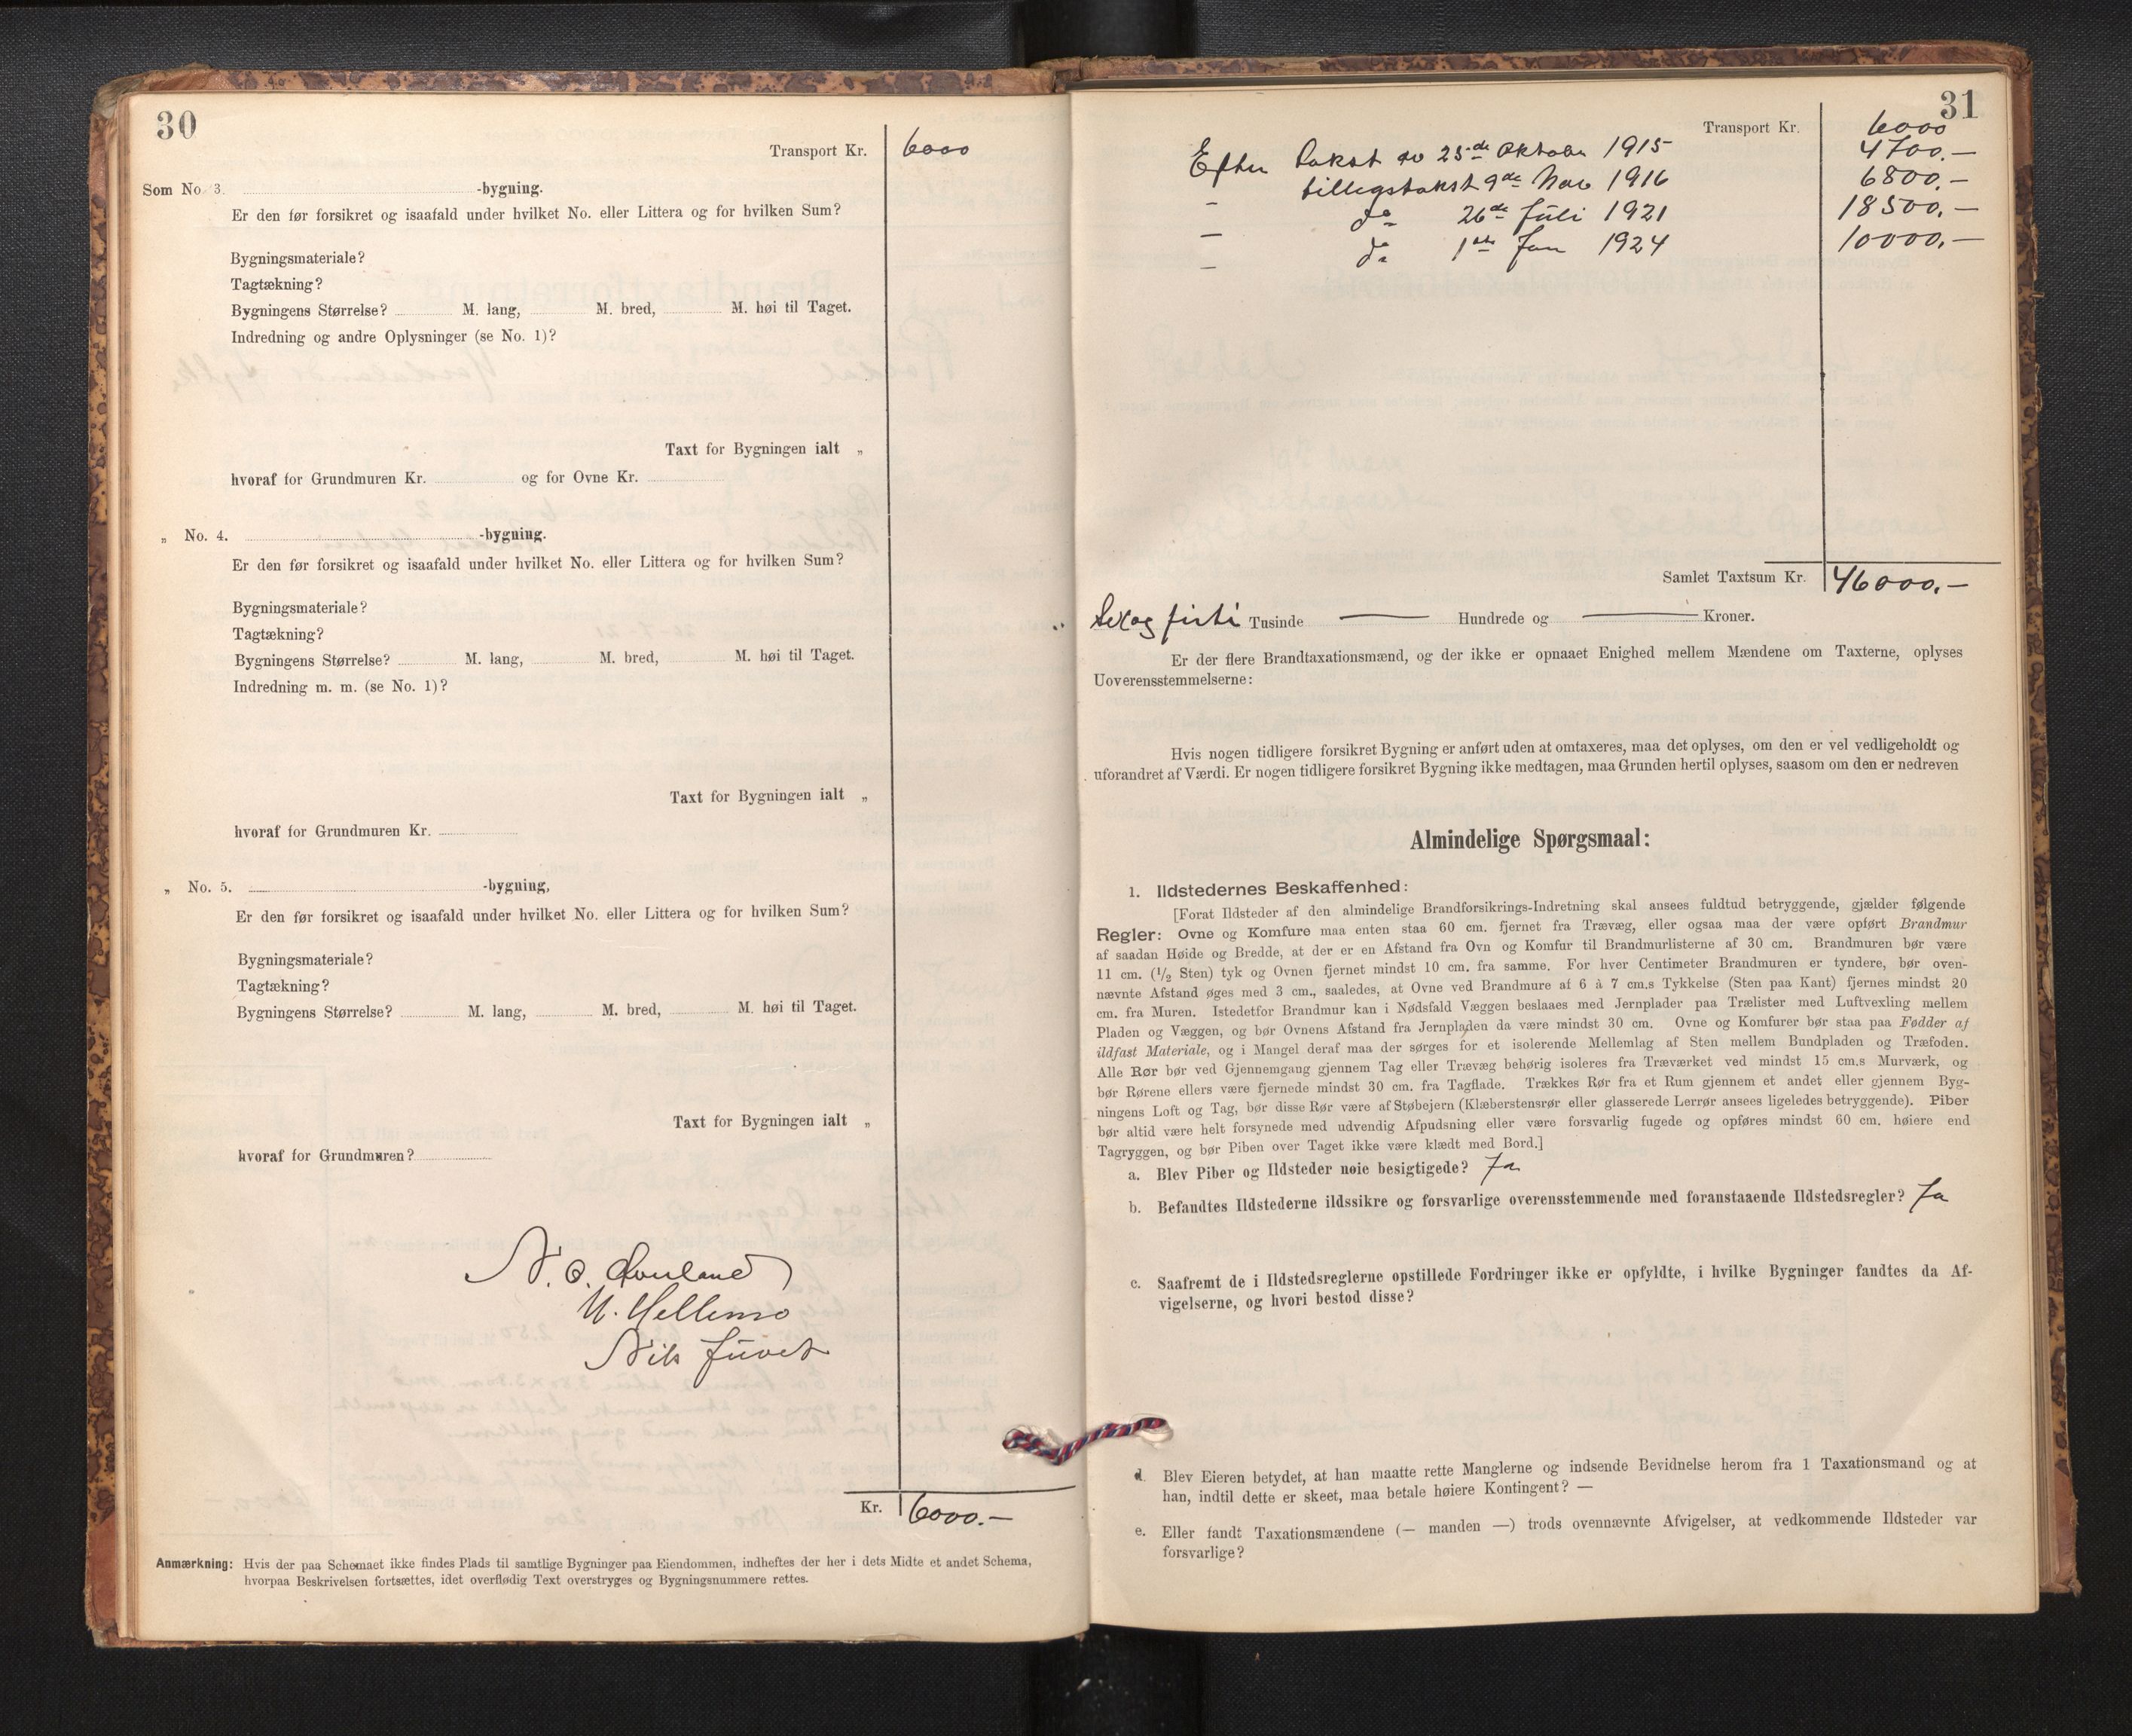 30
Transport Kr. 6000
Som No. 3. -bygning.
Er den før forsikret og isaafald under hvilket No. eller Littera og for hvilken Sum?
Bygningsmateriale?
Tagtækning?
Bygningens Størrelse? M. lang, M. bred, M. høi til Taget.
Indredning og andre Oplysninger (se No. 1)?
Taxt for Bygningen ialt „
hvoraf for Grundmuren Kr. og for Ovne Kr.
„ No. 4. -bygning.
Er den før forsikret og isaafald under hvilket No. eller Littera og for hvilken Sum?
Bygningsmateriale?
Tagtækning?
Bygningens Størrelse? M. lang, M. bred, M. høi til Taget.
Indredning m. m. (se No. 1)?
Taxt for Bygningen ialt „
hvoraf for Grundmuren Kr.
„ No. 5. -bygning,
Er den før forsikret og isaafald under hvilket No. eller Littera og for hvilken Sum?
Bygningsmateriale?
Tagtækning?
Bygningens Størrelse? M. lang, M. bred, M. høi til Taget.
Taxt for Bygningen ialt „
hvoraf for Grundmuren?
N. O.
N. Hellemo
Nils Juvet
Kr. 6000.—
Anmærkning: Hvis der paa Schemaet ikke findes Plads til samtlige Bygninger paa Eiendommen, indheftes der her i dets Midte et andet Schema,
hvorpaa Beskrivelsen fortsættes, idet overflødig Text overstryges og Bygningsnummere rettes.
31
Transport Kr. 6000
Efter Takst av 25de Oktober 1915 4700.—
— tillegstakst 9de Nov 1916 6800.—
— do 26de Juli 1921 18500.—
— do 1ste Jan 1924 10000.—
Samlet Taxtsum Kr. 46000.—
Sexog firti Tusinde — Hundrede og — Kroner.
Er der flere Brandtaxationsmænd, og der ikke er opnaaet Enighed mellem Mændene om Taxterne, oplyses
Uoverensstemmelserne:
Hvis nogen tidligere forsikret Bygning er anført uden at omtaxeres, maa det oplyses, om den er vel vedligeholdt og
uforandret af Værdi. Er nogen tidligere forsikret Bygning ikke medtagen, maa Grunden hertil oplyses, saasom om den er nedreven
Almindelige Spørgsmaal:
1. Ildstedernes Beskaffenhed:
[Forat Ildsteder af den almindelige Brandforsikrings-Indretning skal ansees fuldtud betryggende, gjælder følgende
Regler: Ovne og Komfure maa enten staa 60 cm. fjernet fra Trævæg, eller ogsaa maa der være opført Brandmur
af saadan Høide og Bredde, at der er en Afstand fra Ovn og Komfur til Brandmurlisterne af 30 cm. Brandmuren bør være
11 cm. (1/2 Sten) tyk og Ovnen fjernet mindst 10 cm. fra samme. For hver Centimeter Brandmuren er tyndere, bør oven-
nævnte Afstand øges med 3 cm., saaledes, at Ovne ved Brandmure af 6 à 7 cm.s Tykkelse (Sten paa Kant) fjernes mindst 20
cm. fra Muren. Istedetfor Brandmur kan i Nødsfald Væggen beslaaes med Jernplader paa Trælister med Luftvexling mellem
Pladen og Væggen, og bør Ovnens Afstand fra Jernpladen da være mindst 30 cm. Ovne og Komfurer bør staa paa Fødder af
ildfast Materiale, og i Mangel deraf maa der sørges for et isolerende Mellemlag af Sten mellem Bundpladen og Træfoden.
Alle Rør bør ved Gjennemgang gjennem Tag eller Trævæg behørig isoleres fra Træværket ved mindst 15 cm.s Murværk, og
bør Rørene ellers være fjernede mindst 30 cm. fra Tagflade. Trækkes Rør fra et Rum gjennem et andet eller gjennem Byg-
ningens Loft og Tag, bør disse Rør være af Støbejern (Klæberstensrør eller glasserede Lerrør ansees ligeledes betryggende). Piber
bør altid være helt forsynede med udvendig Afpudsning eller være forsvarlig fugede og opføres mindst 60 cm. høiere end
Tagryggen, og bør Piben over Taget ikke være klædt med Bord.]
a. Blev Piber og Ildsteder nøie besigtigede? Ja
b. Befandtes Ildstederne ildssikre og forsvarlige overensstemmende med foranstaaende Ildstedsregler? Ja
c. Saafremt de i Ildstedsreglerne opstillede Fordringer ikke er opfyldte, i hvilke Bygninger fandtes da Af-
vigelserne, og hvori bestod disse?
d. Blev Eieren betydet, at han maatte rette Manglerne og indsende Bevidnelse herom fra 1 Taxationsmand og at
han, indtil dette er skeet, maa betale høiere Kontingent? —
e. Eller fandt Taxationsmændene (— manden —) trods ovennævnte Afvigelser, at vedkommende Ildsteder var
forsvarlige?